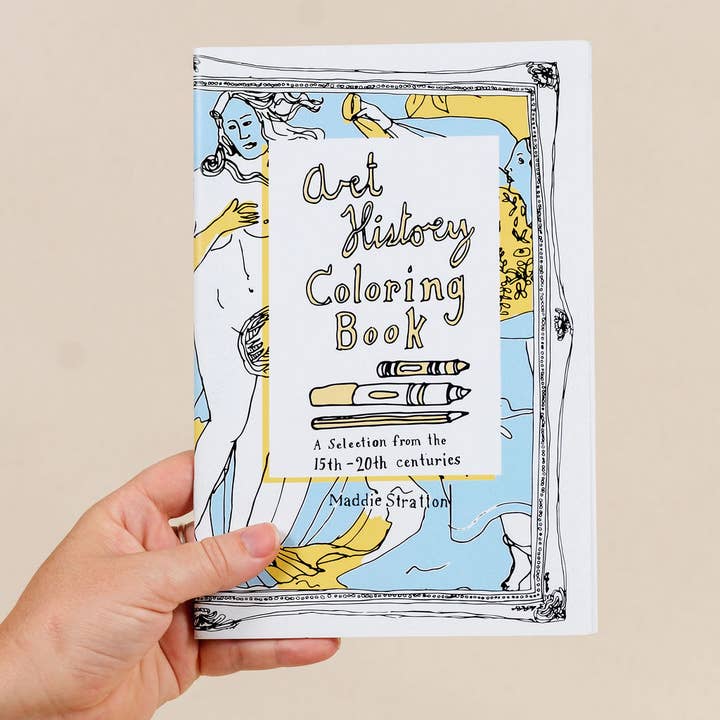 Art
History
Coloring
Book
A Selection from the
15th - 20th centuries
Maddie Stratton